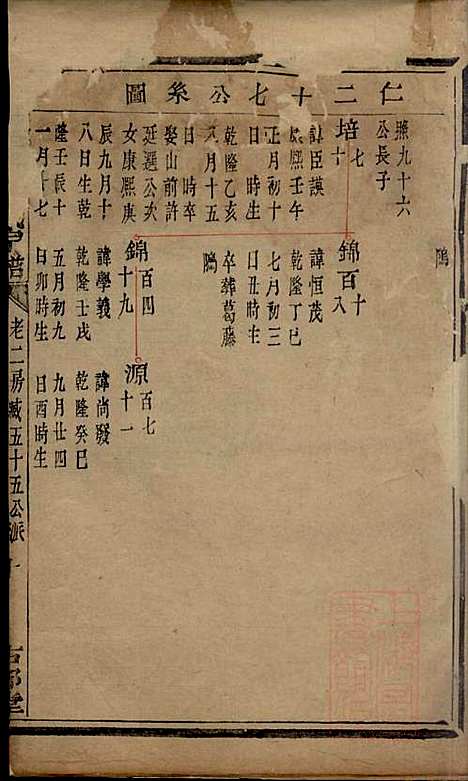 仁二十七公系圖
鴎
照九十六
公長子
培七十
諱臣謨
康熙壬午
正月初十
日時生
乾隆乙亥
八月十五
日時卒
娶山前許
延遞公次
女康熙庚
辰九月十
八日生乾
隆壬辰十
一月十七
錦百十八
諱恒茂
乾隆丁巳
七月初三
日丑時生
卒葬葛藤
鴎
錦百四十九
諱學義
乾隆壬戌
五月初九
日卯時生
源百七十一
諱尚發
乾隆癸巳
九月廿四
日酉時生
老二房臧五十五公派